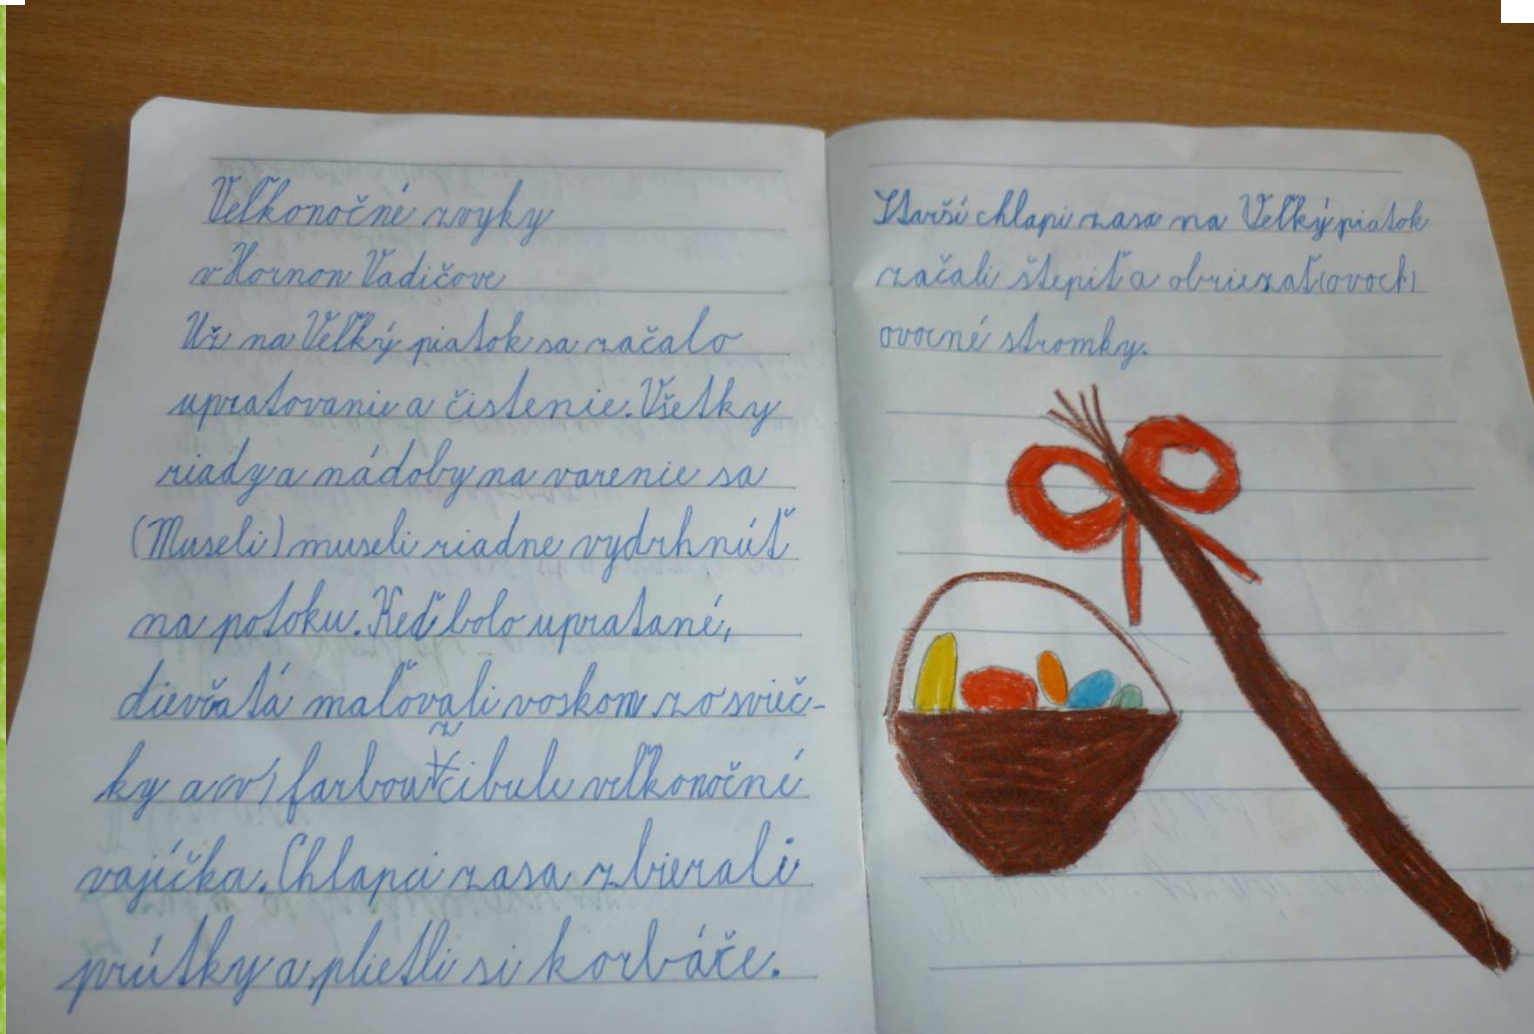 Veľkonočné zvyky
v Hornon Vadičove
Už na Veľký piatok sa začalo
upratovanie a čistenie. Všetky
riady a nádoby na varenie sa
(Museli) museli riadne vydrhnúť
na potoku. Keď bolo upratané,
dievčatá maľovali voskom zo svieč-
z
ky a (v) farbou cibule veľkonočné
vajíčka. Chlapci zasa zbierali
prútky a plietli si korbáče.
Starší chlapi zasa na Veľký piatok
začali štepiť a obriezať (ovoch)
ovocné stromky.